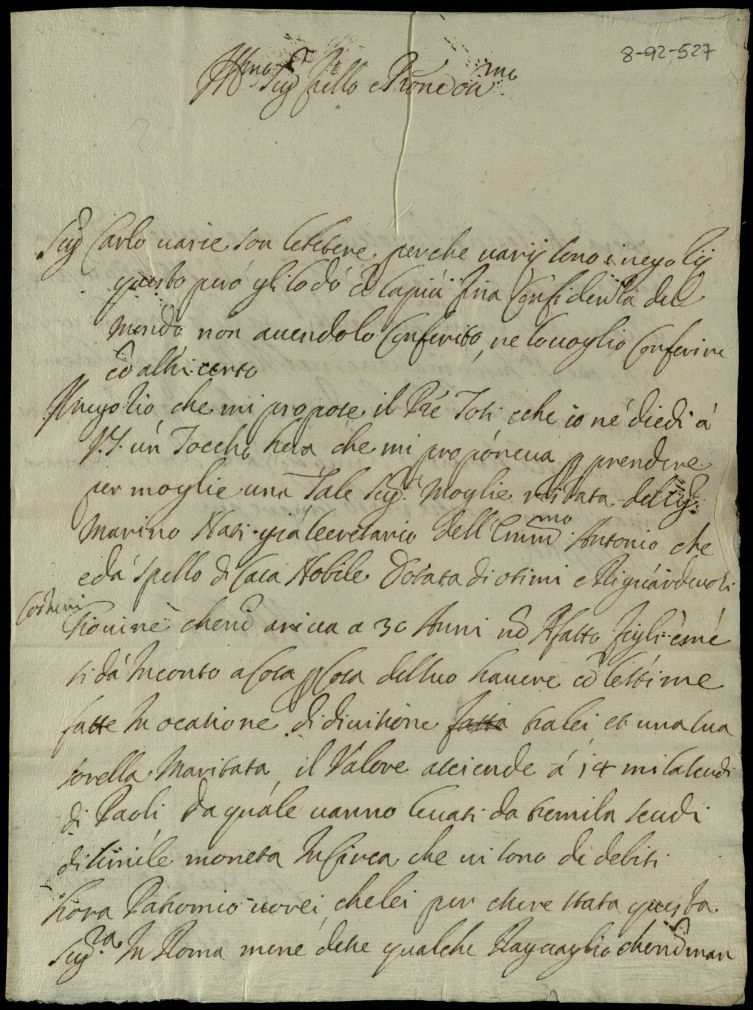 8-92-527
Sig. e Prone
Sig Carlo varie son lettere perche varij sono i negotij
questo però gli lo dò Confidenza del
mondo non avendolo Conferito, ne lo voglio Conferire
cō altri certo
Il negotio che mi propose il Pre Toti che io ne diedi à
V.S. un Toccho hera che mi proponeva prendere
per moglie una Tale Sig.ra Moglie del Sig.
Marino Nati già Secretario dell Emin.mo Antonio che
e da Spello di Casa Nobile Dotata di otimi e Riguardevoli
Costumi
Giovine che nō ariva a 30 Anni nō à fatto figli e mē
si dà In conto a Cosa p Cosa del suo havere cō le stime
fatte In ocasione di divisione fatta tra lei et una sua
sorella Maritata il Valore asciende à 14 mila scudi
di Paoli da quale vanno levati da tremila scudi
di simile moneta In Circa che vi sono di debiti
hora Patromio vorei che lei per essere stata questa
Sig.ra In Roma mene desse qualche Raguaglio che nō man